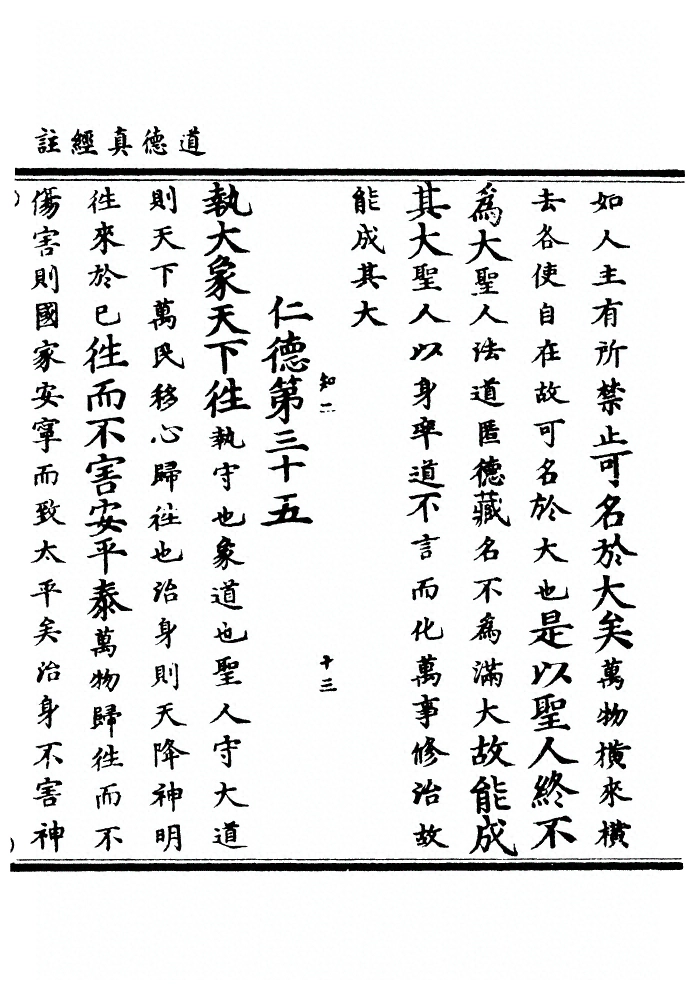 道德真經註
如人主有所禁止可名於大矣萬物橫來橫
去各使自在故可名於大也是以聖人終不
為大聖人法道匿德藏名不為滿大故能成
其大聖人以身率道不言而化萬事修治故
能成其大
知二
十三
仁德第三十五
執大象天下往執守也象道也聖人守大道
則天下萬民移心歸往也治身則天降神明
往來於已往而不害安平泰萬物歸往而不
傷害則國家安寧而致太平矣治身不害神